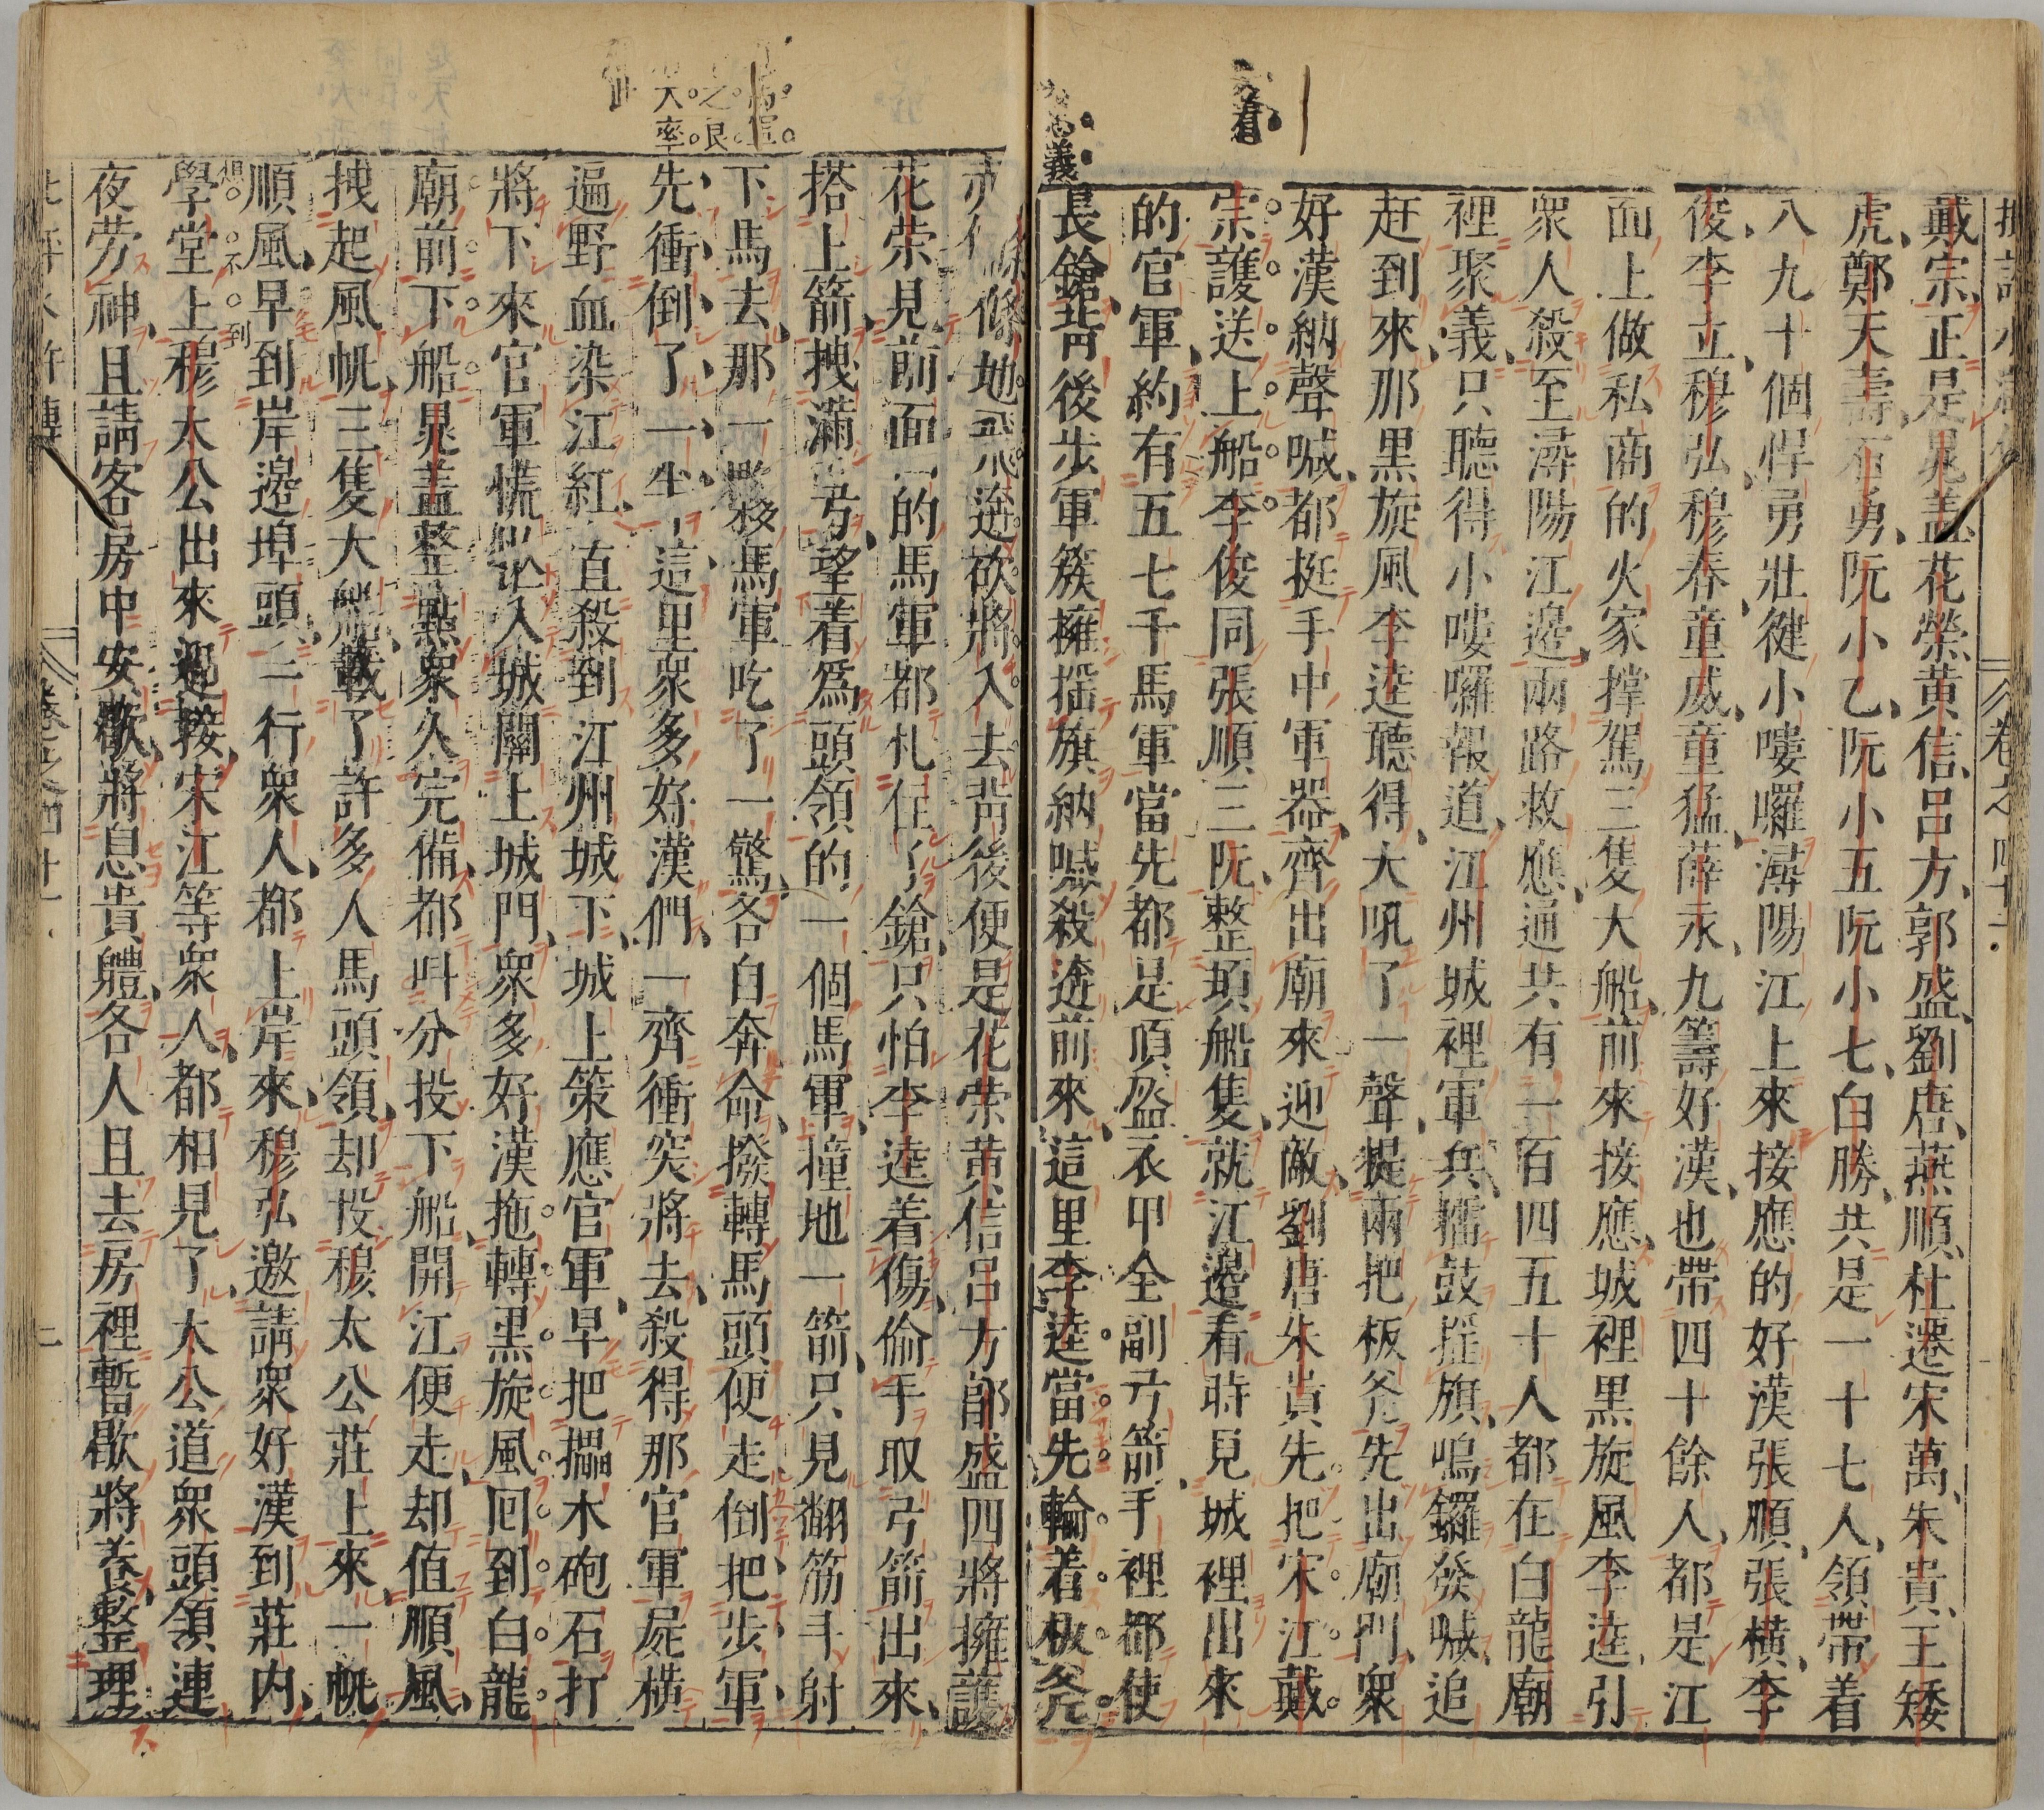 戴宗、正是晁盖花榮黄信、呂方、郭盛、劉唐、燕順、杜遷宋萬、朱貴、王矮
虎、鄭天壽、石勇、阮小乙、阮小五阮小七、白勝、共是一十七人、領帶着
八九十個悍勇壯健小嘍囉潯陽江上來接應的好漢張順、張横、李
俊、李立、穆弘、穆春、童威、童猛、薛永、九籌好漢、也帶四十餘人、都是江
面上做私商的火家撑駕三隻大船、前來接應、城裡黑旋風李逵引
衆人殺至潯陽江邊兩路救應、通共有一百四五十人都在白龍廟
裡聚義、只聽得小嘍囉報道、江州城裡軍兵、擂鼓揺旗、鳴鑼發喊、追
赶到來、那黒旋風李逵聽得、大吼了一聲、提兩把板斧先出廟門、衆
好漢納聲喊、都挺手中軍器、齊出廟來迎敵、劉唐朱貴先把宋江戴
宗護送上船、李俊同張順三阮、整頓船隻、就江邊看時見城裡出來
的官軍、約有五七千馬軍當先都是頂盔衣甲全副弓箭、手裡都使
長鎗、背後步軍簇擁揺旗納喊殺迸前來、這里李逵當先輪着板斧
花榮黄信呂方郭盛四將擁護
花荣見前面的馬軍都札住了鎗、只怕李逵着傷、偷手取弓箭出來、
搭上箭、拽滿弓、望着爲頭領的一個馬軍、撞地一箭、只見翻筋斗射
下馬去、那一夥馬軍吃了一驚、各自奔命、撥轉馬頭便走、倒把步軍
先衝倒了一半、這里衆多好漢們、一齊衝突將去、殺得那官軍屍横
遍野血染江紅直殺到江州城下、城上策應官軍、早把擂木砲石打
將下來官軍慌忙入城關上城門、衆多好漢拖轉黒旋風囘到白龍
廟前下船晁盖整點衆人完備、都叫分投下船、開江便走、却值順風、
拽起風帆、三隻大船載了許多人馬頭領、却投穆太公莊上來、一帆
順風、早到岸邊埠頭、一行衆人、都上岸來、穆弘邀請衆好漢到莊内、
學堂上、穆太公出來迎接宋江等衆人、都相見了、太公道衆頭領連
夜劳神、且請客房中安歇、將息貴體、各人且去房裡暫歇將養整理